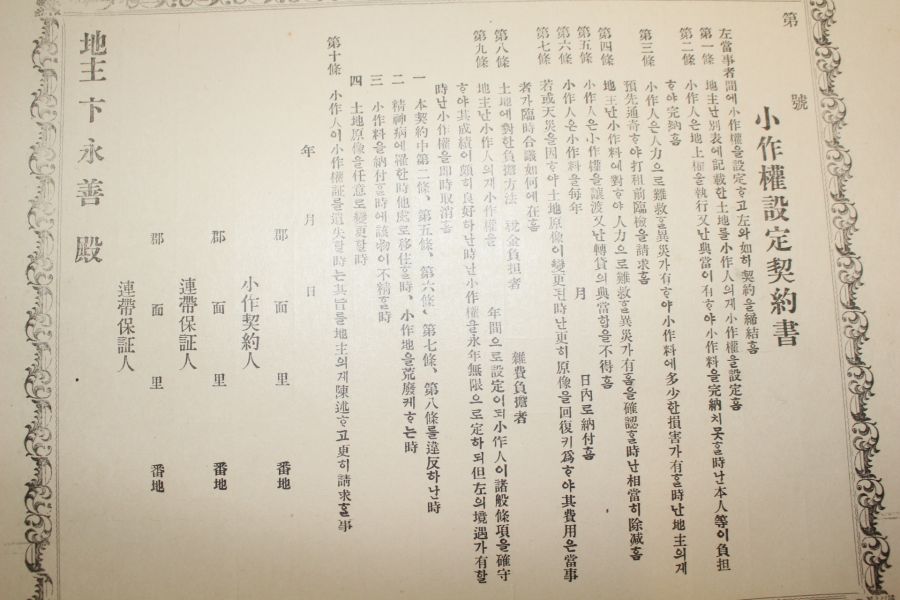 第　號
小作權設定契約書
左當事者間에小作權을設定ᄒᆞ고左와如히契約을締結홈
第一條　地主난別表에記載한土地를小作人의게小作權을設定홈
第二條　小作人은地上權을執行又난典當이有ᄒᆞ야小作料을完納치못ᄒᆞᆯ時난本人等이負担
ᄒᆞ야完納홈
第三條　小作人은人力으로難救ᄒᆞᆯ異災가有ᄒᆞ야小作料에多少한損害가有ᄒᆞᆯ時난地主의게
預先通奇ᄒᆞ야打租前臨檢을請求홈
第四條　地主난小作料에對ᄒᆞ야人力으로難救ᄒᆞᆯ異災가有홈을確認ᄒᆞᆯ時난相當히除減홈
第五條　小作人은小作權을讓渡又난轉貸의典當함을不得홈
第六條　小作人은小作料을每年　月　日內로納付홈
第七條　若或天災을因ᄒᆞ야土地原像이變更된時난更히原像을回復키爲ᄒᆞ야其費用은當事
者가臨時合議如何에在홈
第八條　土地에對한負擔方法　稅金負担者　雜費負擔者
第九條　地主난小作人의게小作權을　年間으로設定이되小作人이諸般條項을確守
ᄒᆞ야其成績이頗히良好하난時난小作權을永年無限으로定하되但左의境遇가有할
時난小作權을即時取消홈
一　本契約中第二條、第五條、第六條、第七條、第八條를違反하난時
二　精神病에罹한時他處로移住ᄒᆞᆯ時、小作地을荒廢케ᄒᆞ는時
三　小作料을納付ᄒᆞᆯ時에該物이不精ᄒᆞᆯ時
四　土地原像을任意로變更할時
第十條　小作人이小作權証를遺失할時는其旨를地主의게陳述ᄒᆞ고更히請求ᄒᆞᆯ事
年　月　日
郡　面　里　番地
小作契約人
郡　面　里　番地
連帶保証人
郡　面　里　番地
連帶保証人
地主　卞永善　殿